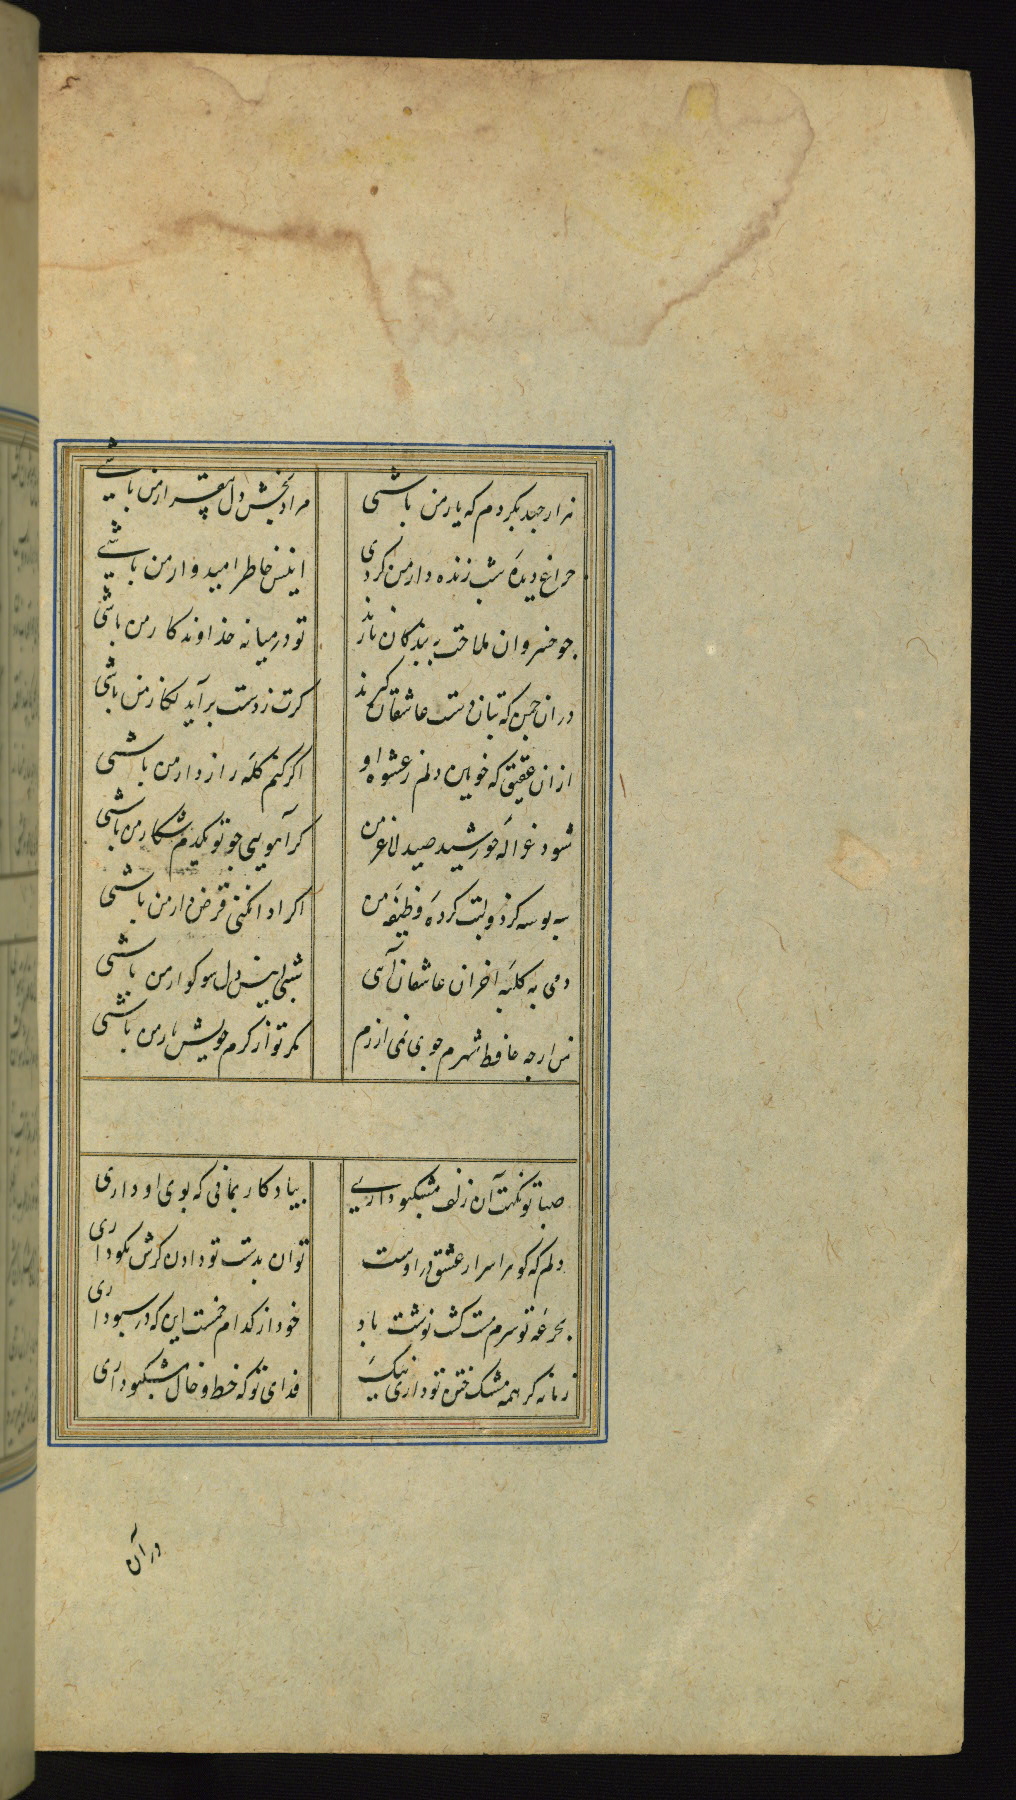 هزار جهد بکردم که یار من باشی
مراد بخش دل بیقرار من باشی
چراغ دیده شب زنده دار من کردی
انیس خاطر امیدوار من باشی
جو خسروان ملاحت به بندکان نازند
تو در میانه خداوند کار من باشی
در ان جمن که بتان دست عاشقان کیرند
کرت ز دست بر آید نکار من باشی
از ان عقیق که خونین دلم ز عشوه او
اکر کنم کله راز دار من باشی
شود غزاله خورشید صید لاغر من
کر آهویی جو تو یکدم شکار من باشی
سه بوسه کز دو لبت کرده وظیفه من
اکر ادا نکنی قرض دار من باشی
دمی به کلبه احزان عاشقان آی
شبی انیس دل سوکوار من باشی
من ارجه حافظ شهرم جوی نمی ارزم
مکر تو از کرم خویش یار من باشی
صبا تو نکهت آن زلف مشکبو داری
بیادکار بمانی که بوی او داری
دلم که کوهر اسرار عشق در اوست
توان بدست تو دادن کرش نکو داری
بجرعه تو سرم مست کشت نوشت باد
خود از کدام خمست این که در سبو داری
زمانه کر همه مشک ختن تو داری نیک
فدای تو که خط و خال مشکبو داری
در آن